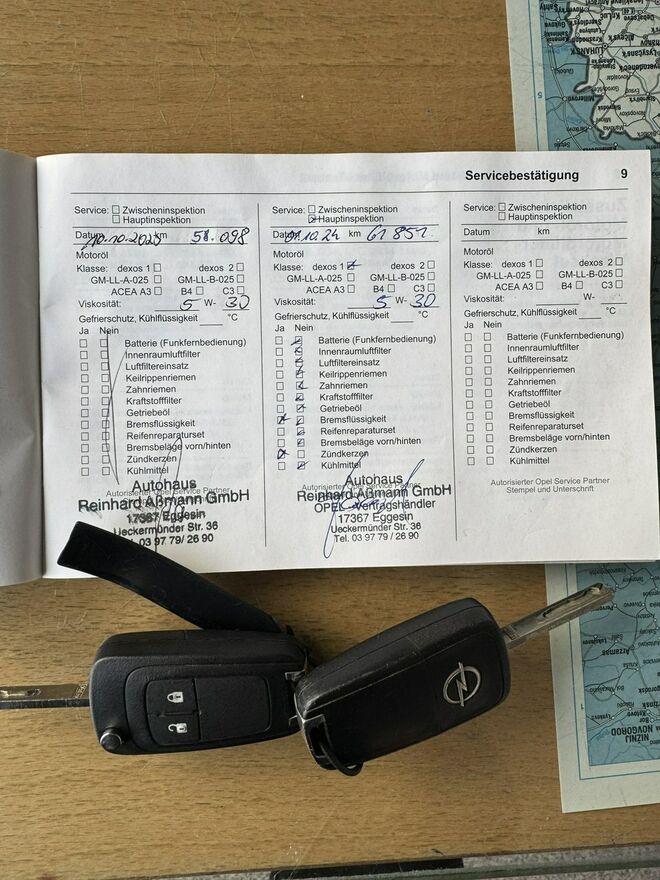 Servicebestätigung 9
Service: Zwischeninspektion
Hauptinspektion
Datum 10.10.2023 km 51.098
Motoröl
Klasse: dexos 1 dexos 2
GM-LL-A-025 GM-LL-B-025
ACEA A3 B4 C3
Viskosität: 5 W- 30
Gefrierschutz, Kühlflüssigkeit °C
Ja Nein
Batterie (Funkfernbedienung)
Innenraumluftfilter
Luftfiltereinsatz
Keilrippenriemen
Zahnriemen
Kraftstofffilter
Getriebeöl
Bremsflüssigkeit
Reifenreparaturset
Bremsbeläge vorn/hinten
Zündkerzen
Kühlmittel
Autorisierter Opel Service Partner
Autohaus
Reinhard Aßmann GmbH
17367 Eggesin
Ueckermünder Str. 36
Tel. 03 97 79 / 26 90
Service: Zwischeninspektion
Hauptinspektion
Datum 01.10.24 km 61851
Motoröl
Klasse: dexos 1 dexos 2
GM-LL-A-025 GM-LL-B-025
ACEA A3 B4 C3
Viskosität: 5 W- 30
Gefrierschutz, Kühlflüssigkeit °C
Ja Nein
Batterie (Funkfernbedienung)
Innenraumluftfilter
Luftfiltereinsatz
Keilrippenriemen
Zahnriemen
Kraftstofffilter
Getriebeöl
Bremsflüssigkeit
Reifenreparaturset
Bremsbeläge vorn/hinten
Zündkerzen
Kühlmittel
Autohaus
Reinhard Aßmann GmbH
OPEL - Vertragshändler
17367 Eggesin
Ueckermünder Str. 36
Tel. 03 97 79 / 26 90
Service: Zwischeninspektion
Hauptinspektion
Datum km
Motoröl
Klasse: dexos 1 dexos 2
GM-LL-A-025 GM-LL-B-025
ACEA A3 B4 C3
Viskosität: W-
Gefrierschutz, Kühlflüssigkeit °C
Ja Nein
Batterie (Funkfernbedienung)
Innenraumluftfilter
Luftfiltereinsatz
Keilrippenriemen
Zahnriemen
Kraftstofffilter
Getriebeöl
Bremsflüssigkeit
Reifenreparaturset
Bremsbeläge vorn/hinten
Zündkerzen
Kühlmittel
Autorisierter Opel Service Partner
Stempel und Unterschrift
LUHANS'K
Arzamas
NIŽNIJ
NOVGOROD